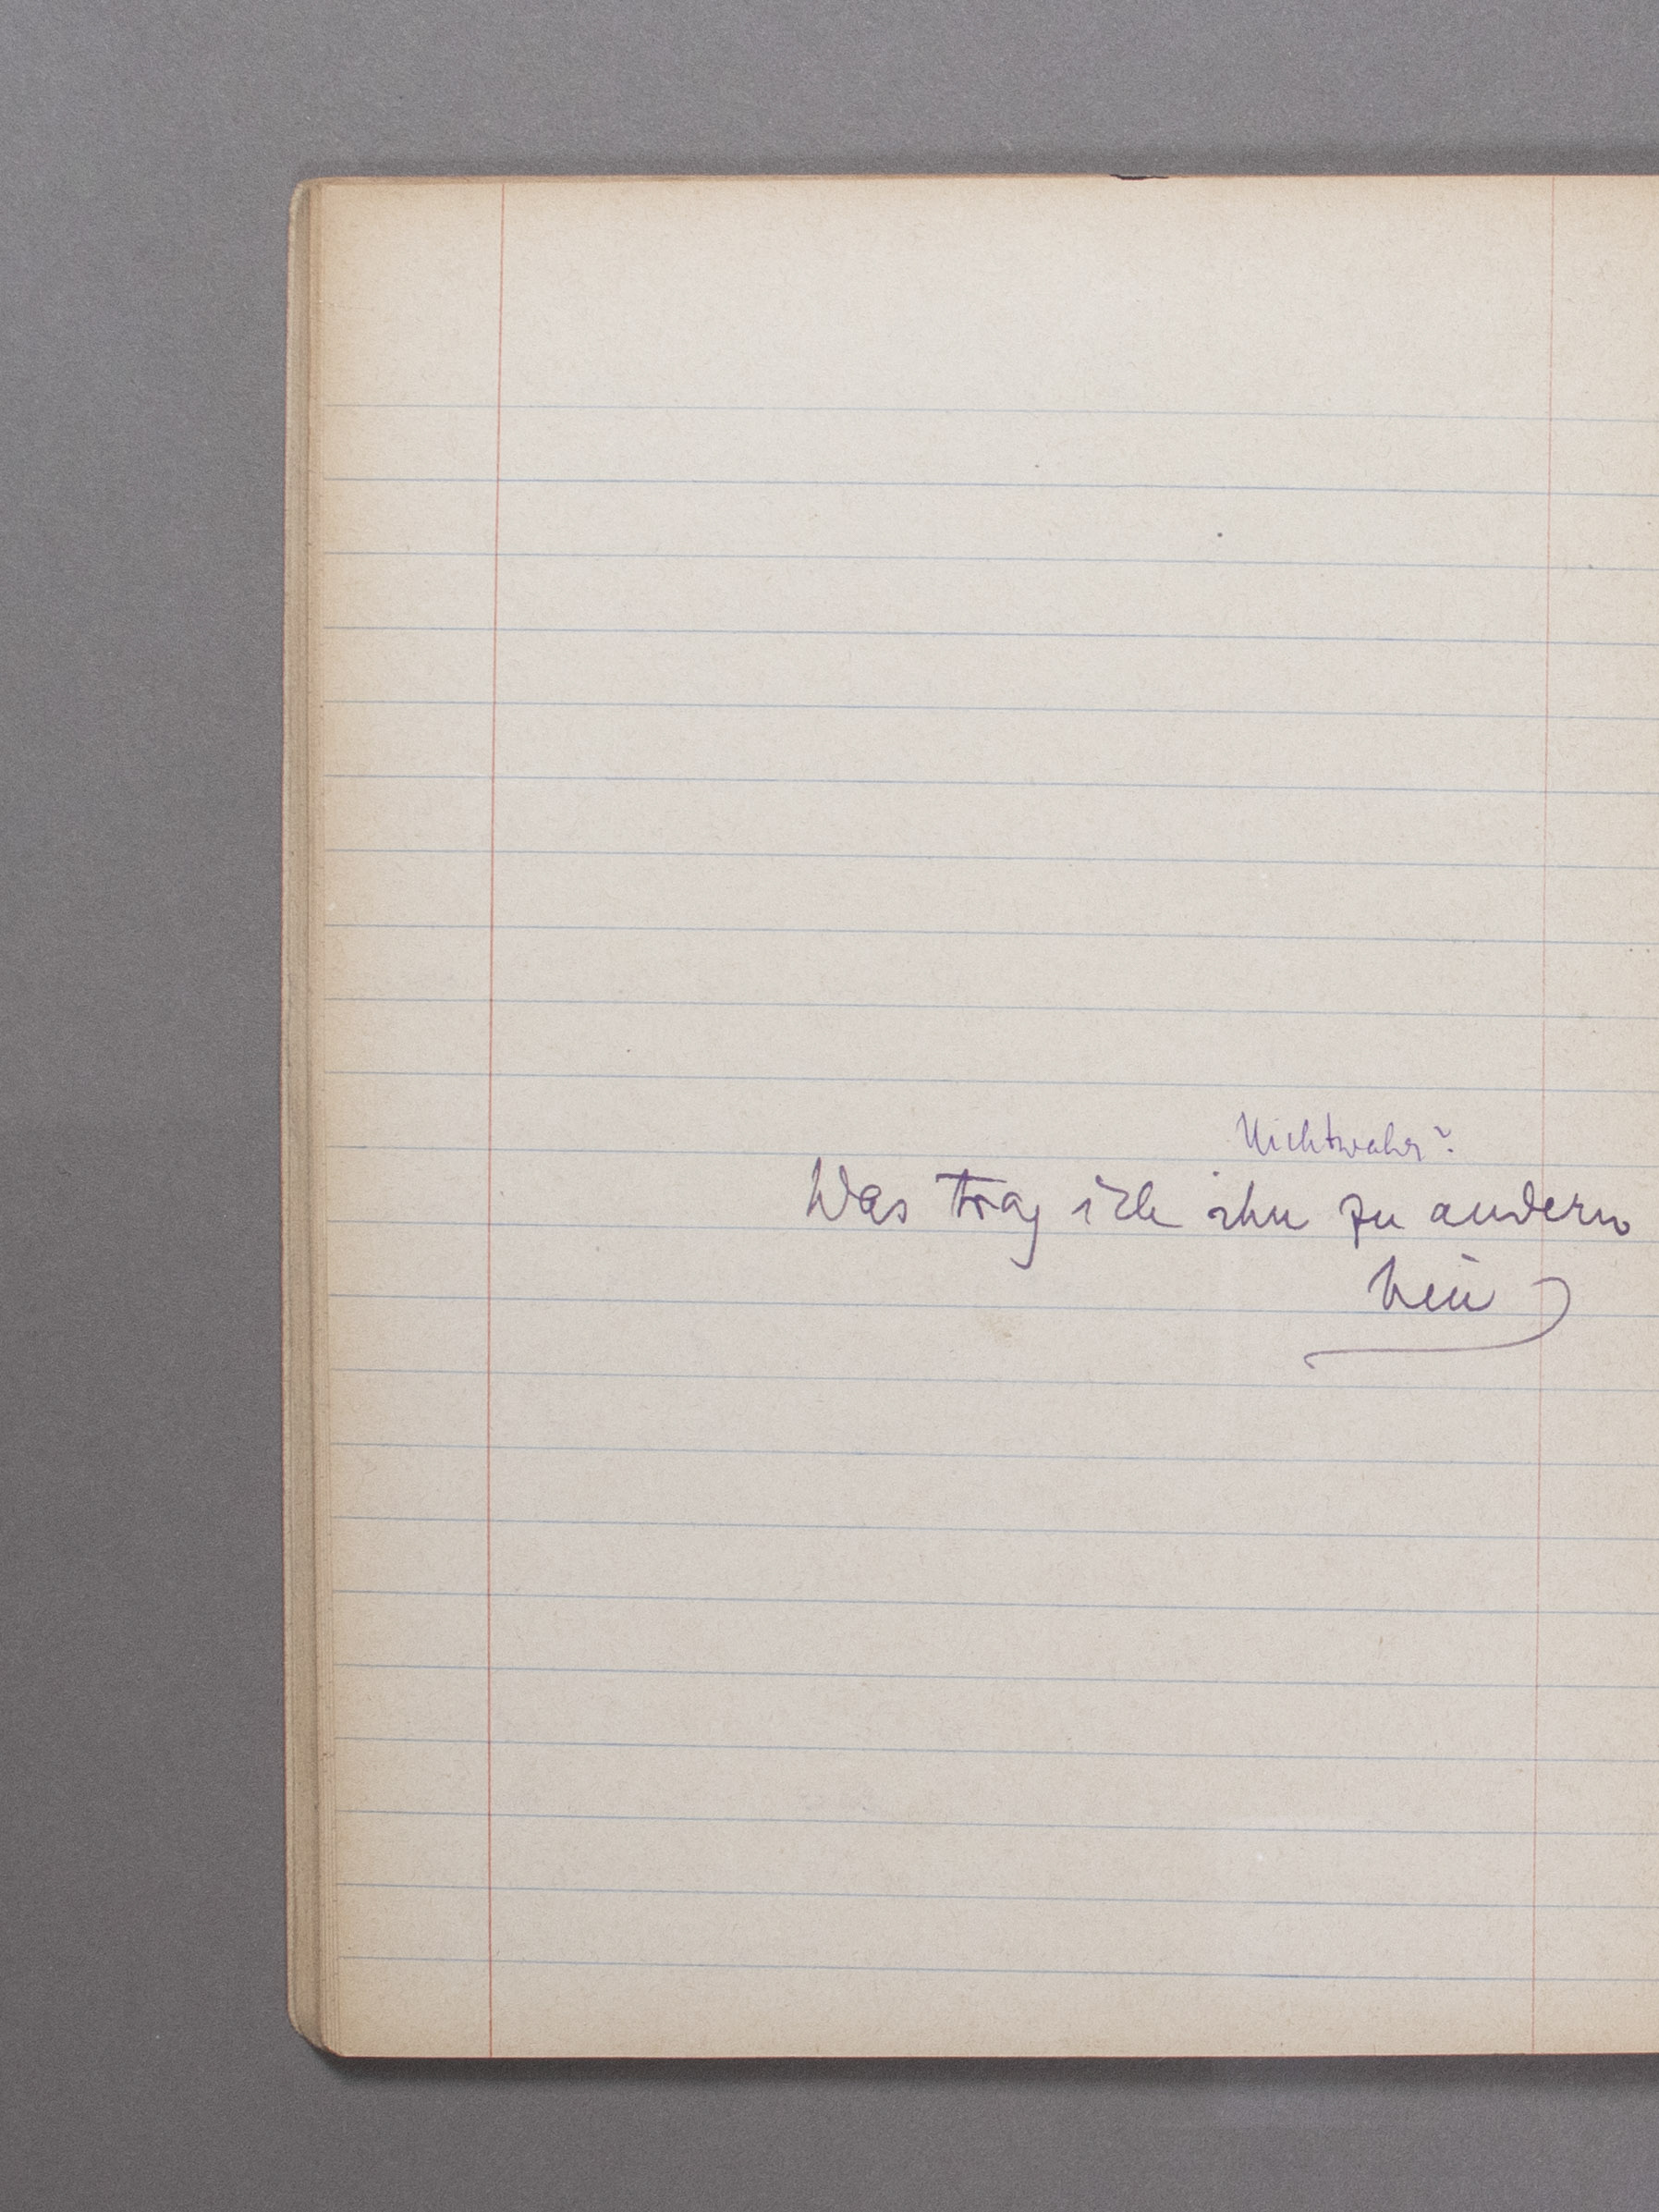 Nichtwahr?
Was trag ich ihn zu andern
hin